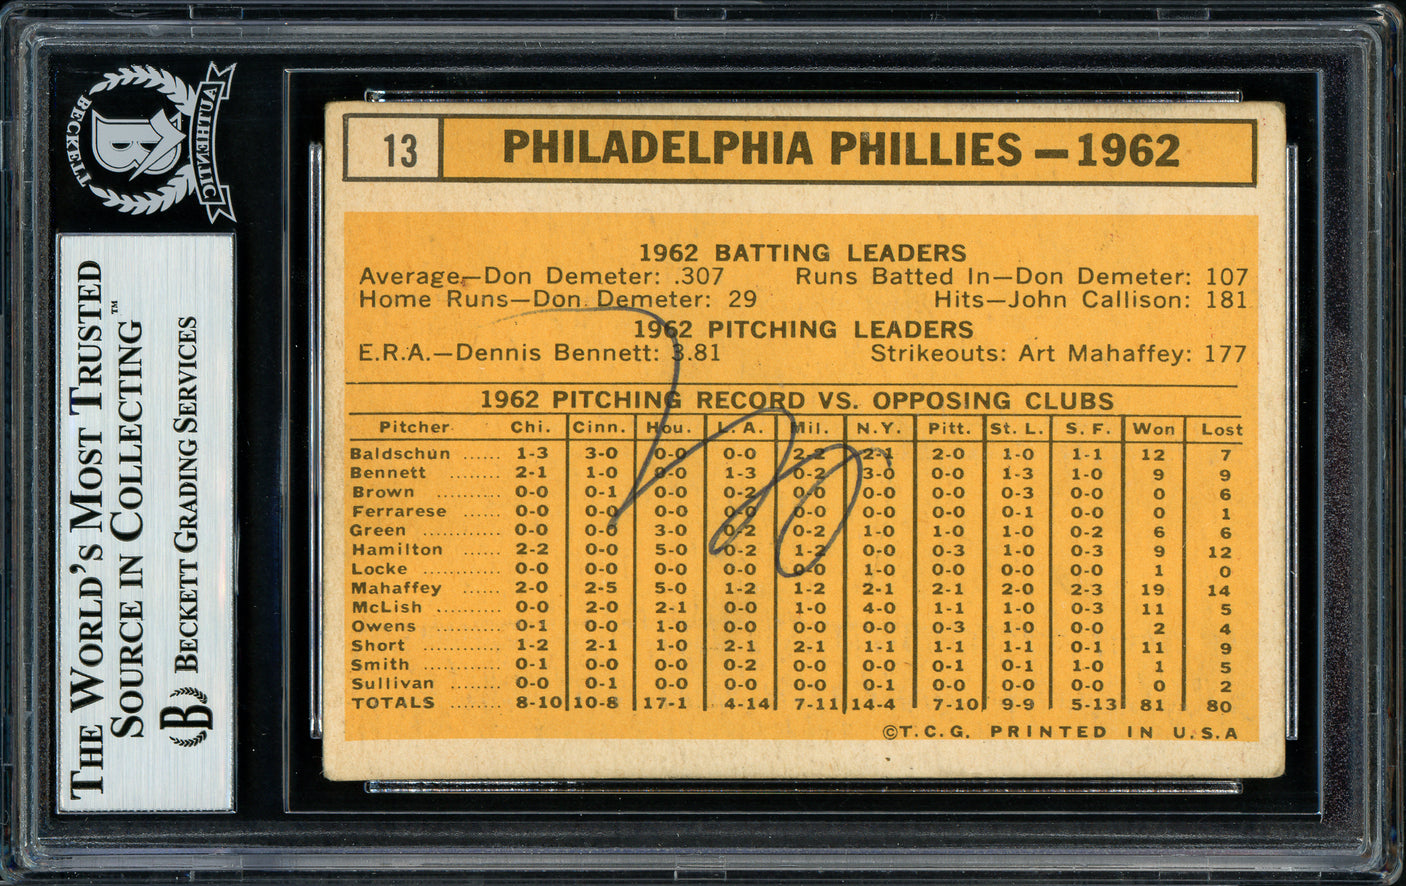 BECKETT
AUTHENTIC
B
THE WORLD'S MOST TRUSTED
SOURCE IN COLLECTING™
BECKETT GRADING SERVICES
B
13 PHILADELPHIA PHILLIES — 1962
1962 BATTING LEADERS
Average—Don Demeter: .307 Runs Batted In—Don Demeter: 107
Home Runs—Don Demeter: 29 Hits—John Callison: 181
1962 PITCHING LEADERS
E.R.A.—Dennis Bennett: 3.81 Strikeouts: Art Mahaffey: 177
1962 PITCHING RECORD VS. OPPOSING CLUBS
Pitcher Chi. Cinn. Hou. L. A. Mil. N.Y. Pitt. St. L. S. F. Won Lost
Baldschun ...... 1-3 3-0 0-0 0-0 2-2 2-1 2-0 1-0 1-1 12 7
Bennett ........ 2-1 1-0 0-0 1-3 0-2 3-0 0-0 1-3 1-0 9 9
Brown .......... 0-0 0-1 0-0 0-2 0-0 0-0 0-0 0-3 0-0 0 6
Ferrarese ...... 0-0 0-0 0-0 0-0 0-0 0-0 0-0 0-1 0-0 0 1
Green .......... 0-0 0-0 3-0 0-2 0-2 1-0 1-0 1-0 0-2 6 6
Hamilton ...... 2-2 0-0 5-0 0-2 1-2 0-0 0-3 1-0 0-3 9 12
Locke .......... 0-0 0-0 0-0 0-0 0-0 1-0 0-0 0-0 0-0 1 0
Mahaffey ...... 2-0 2-5 5-0 1-2 1-2 2-1 2-1 2-0 2-3 19 14
McLish ........ 0-0 2-0 2-1 0-0 1-0 4-0 1-1 1-0 0-3 11 5
Owens .......... 0-1 0-0 1-0 0-0 0-0 0-0 0-3 1-0 0-0 2 4
Short .......... 1-2 2-1 1-0 2-1 2-1 1-1 1-1 1-1 0-1 11 9
Smith .......... 0-1 0-0 0-0 0-2 0-0 0-0 0-1 0-1 1-0 1 5
Sullivan ........ 0-0 0-1 0-0 0-0 0-0 0-1 0-0 0-0 0-0 0 2
TOTALS ........ 8-10 10-8 17-1 4-14 7-11 14-4 7-10 9-9 5-13 81 80
©T.C.G. PRINTED IN U.S.A